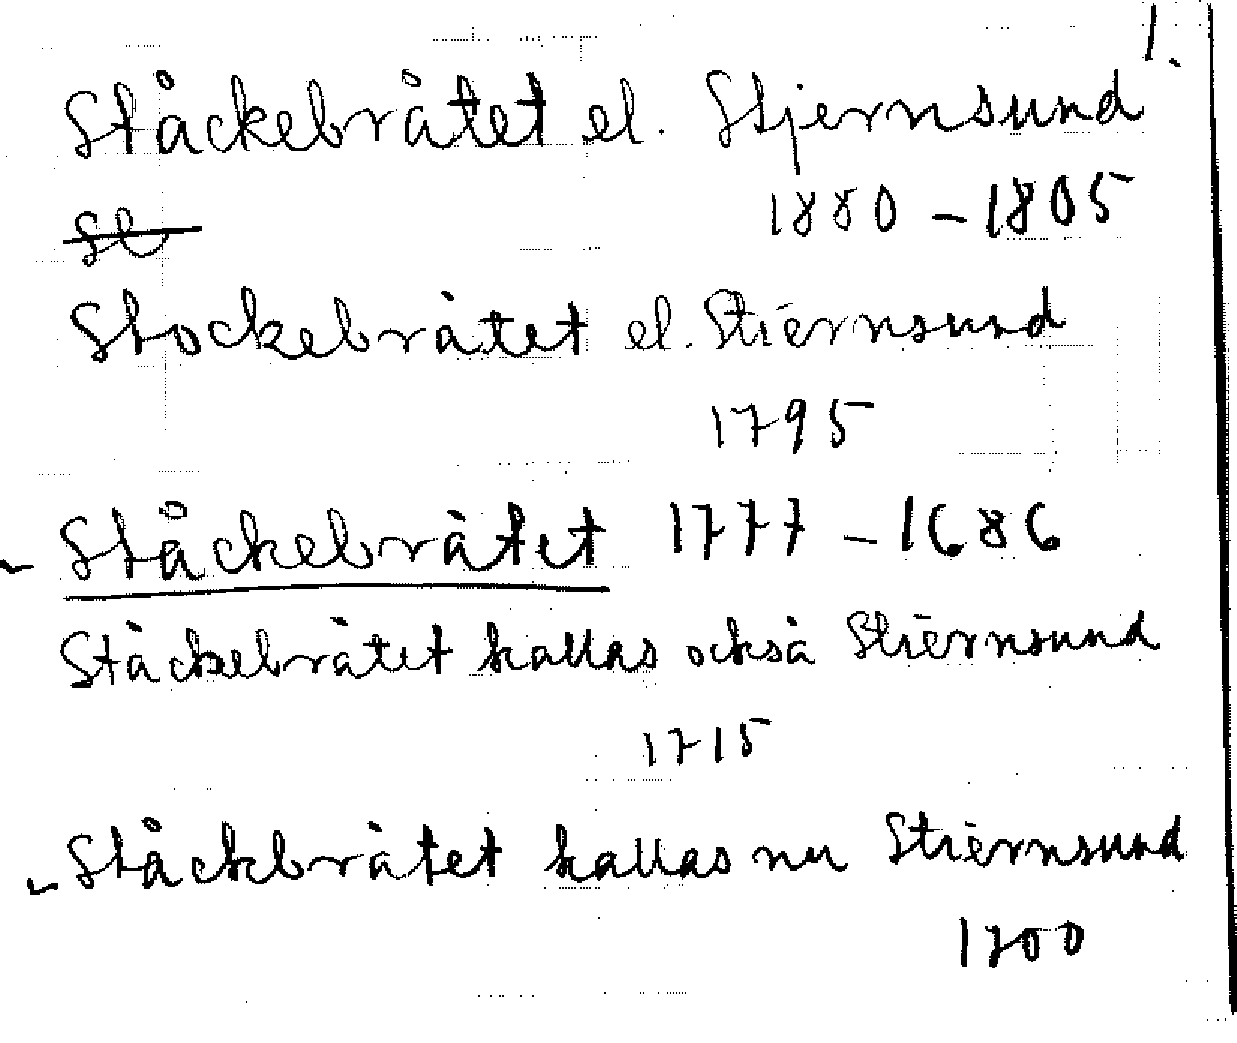 1.
Ståckebråtet el. Stjernsund
1880 - 1805
Stockebråtet el. Stiernsund
1795
Ståckebråtet 1777 - 1686
Ståckebråtet kallas också Stiernsund
1715
Ståckbråtet kallas nu Stiernsund
1700